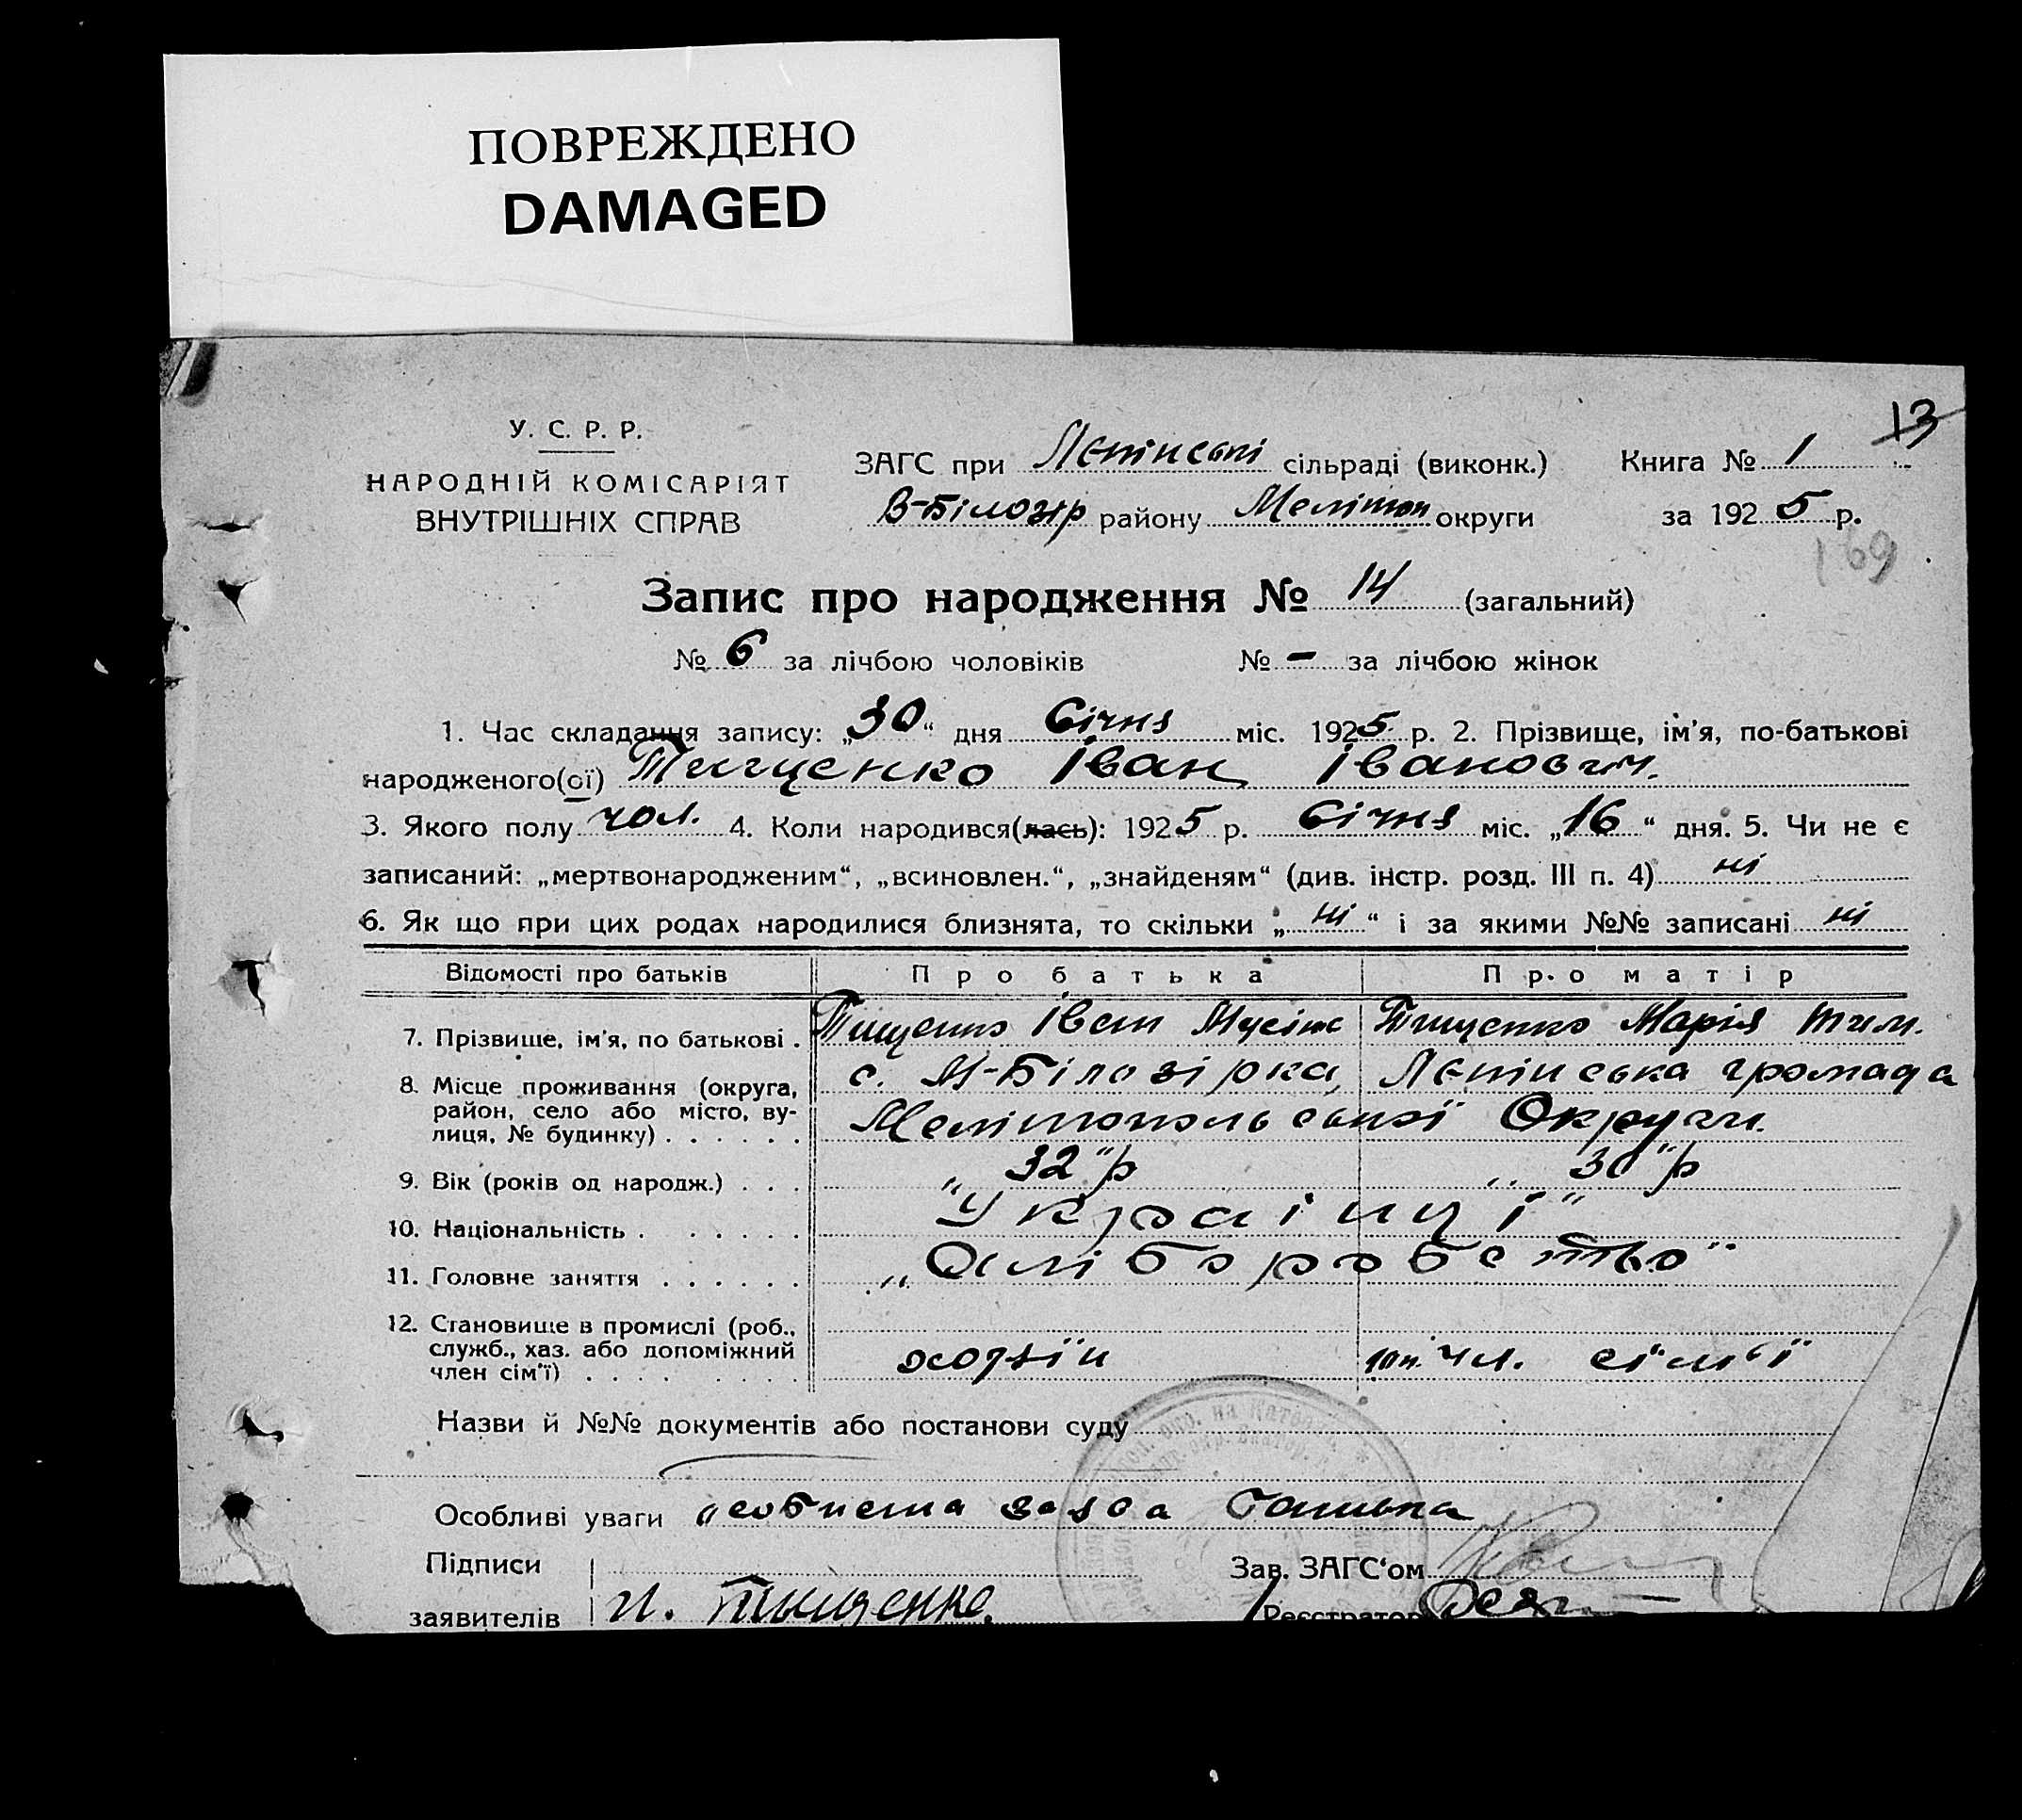 ПОВРЕЖДЕНО
DAMAGED
13
У. С. Р. Р.
НАРОДНІЙ КОМІСАРІЯТ
ВНУТРІШНІХ СПРАВ
ЗАГС при Лєнінські сільраді (виконк.) Книга № 1
В-Білозір району Мелітоп округи за 1925 р.
169
Запис про народження № 14 (загальний)
№ 6 за лічбою чоловіків № – за лічбою жінок
1. Час складання запису: „30“ дня Січня міс. 1925 р. 2. Прізвище, ім'я, по-батькові
народженого(ої) Тищенко Іван Іванович.
3. Якого полу чол. 4. Коли народився(лась): 1925 р. Січня міс. „16“ дня. 5. Чи не є
записаний: „мертвонародженим“, „всиновлен.“, „знайденям“ (див. інстр. розд. III п. 4) ні
6. Як що при цих родах народилися близнята, то скільки „ні“ і за якими №№ записані ні
Відомості про батьків Про батька Про матір
7. Прізвище, ім'я, по батькові . Тищенко Іван Мусієв Тищенко Марія Тим.
8. Місце проживання (округа, с. М-Білозірка, Лєнінська громада
район, село або місто, ву-
лиця, № будинку) . . . . . . Мелітопольської Округи.
9. Вік (років од народж.) . . . „32“ р „30“ р
10. Національність . . . . . . "Українці"
11. Головне заняття . . . . . . „Хліборобство“
12. Становище в промислі (роб.,
служб., хаз. або допоміжний
член сім'ї) . . . . . . . . хозяїн чл. сім'ї
Назви й №№ документів або постанови суду
Особливі уваги особиста заява батька
Підписи Зав. ЗАГС'ом
заявителів И. Тыщенко. Реєстратор